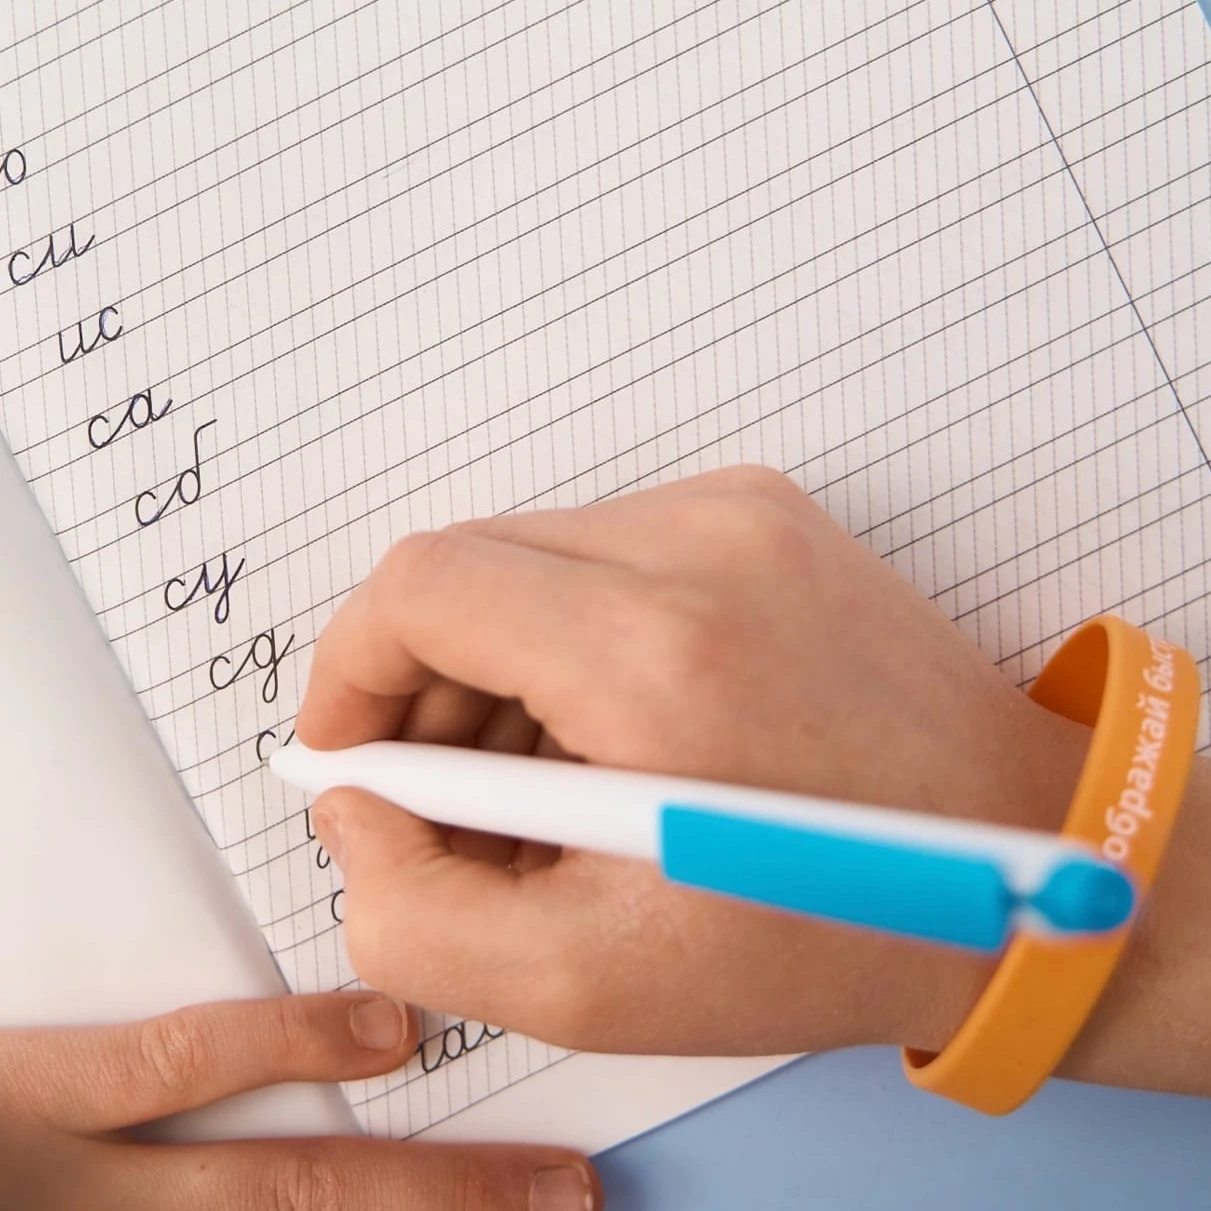 о
си
ис
са
сб
су
сд
с
ображай быст